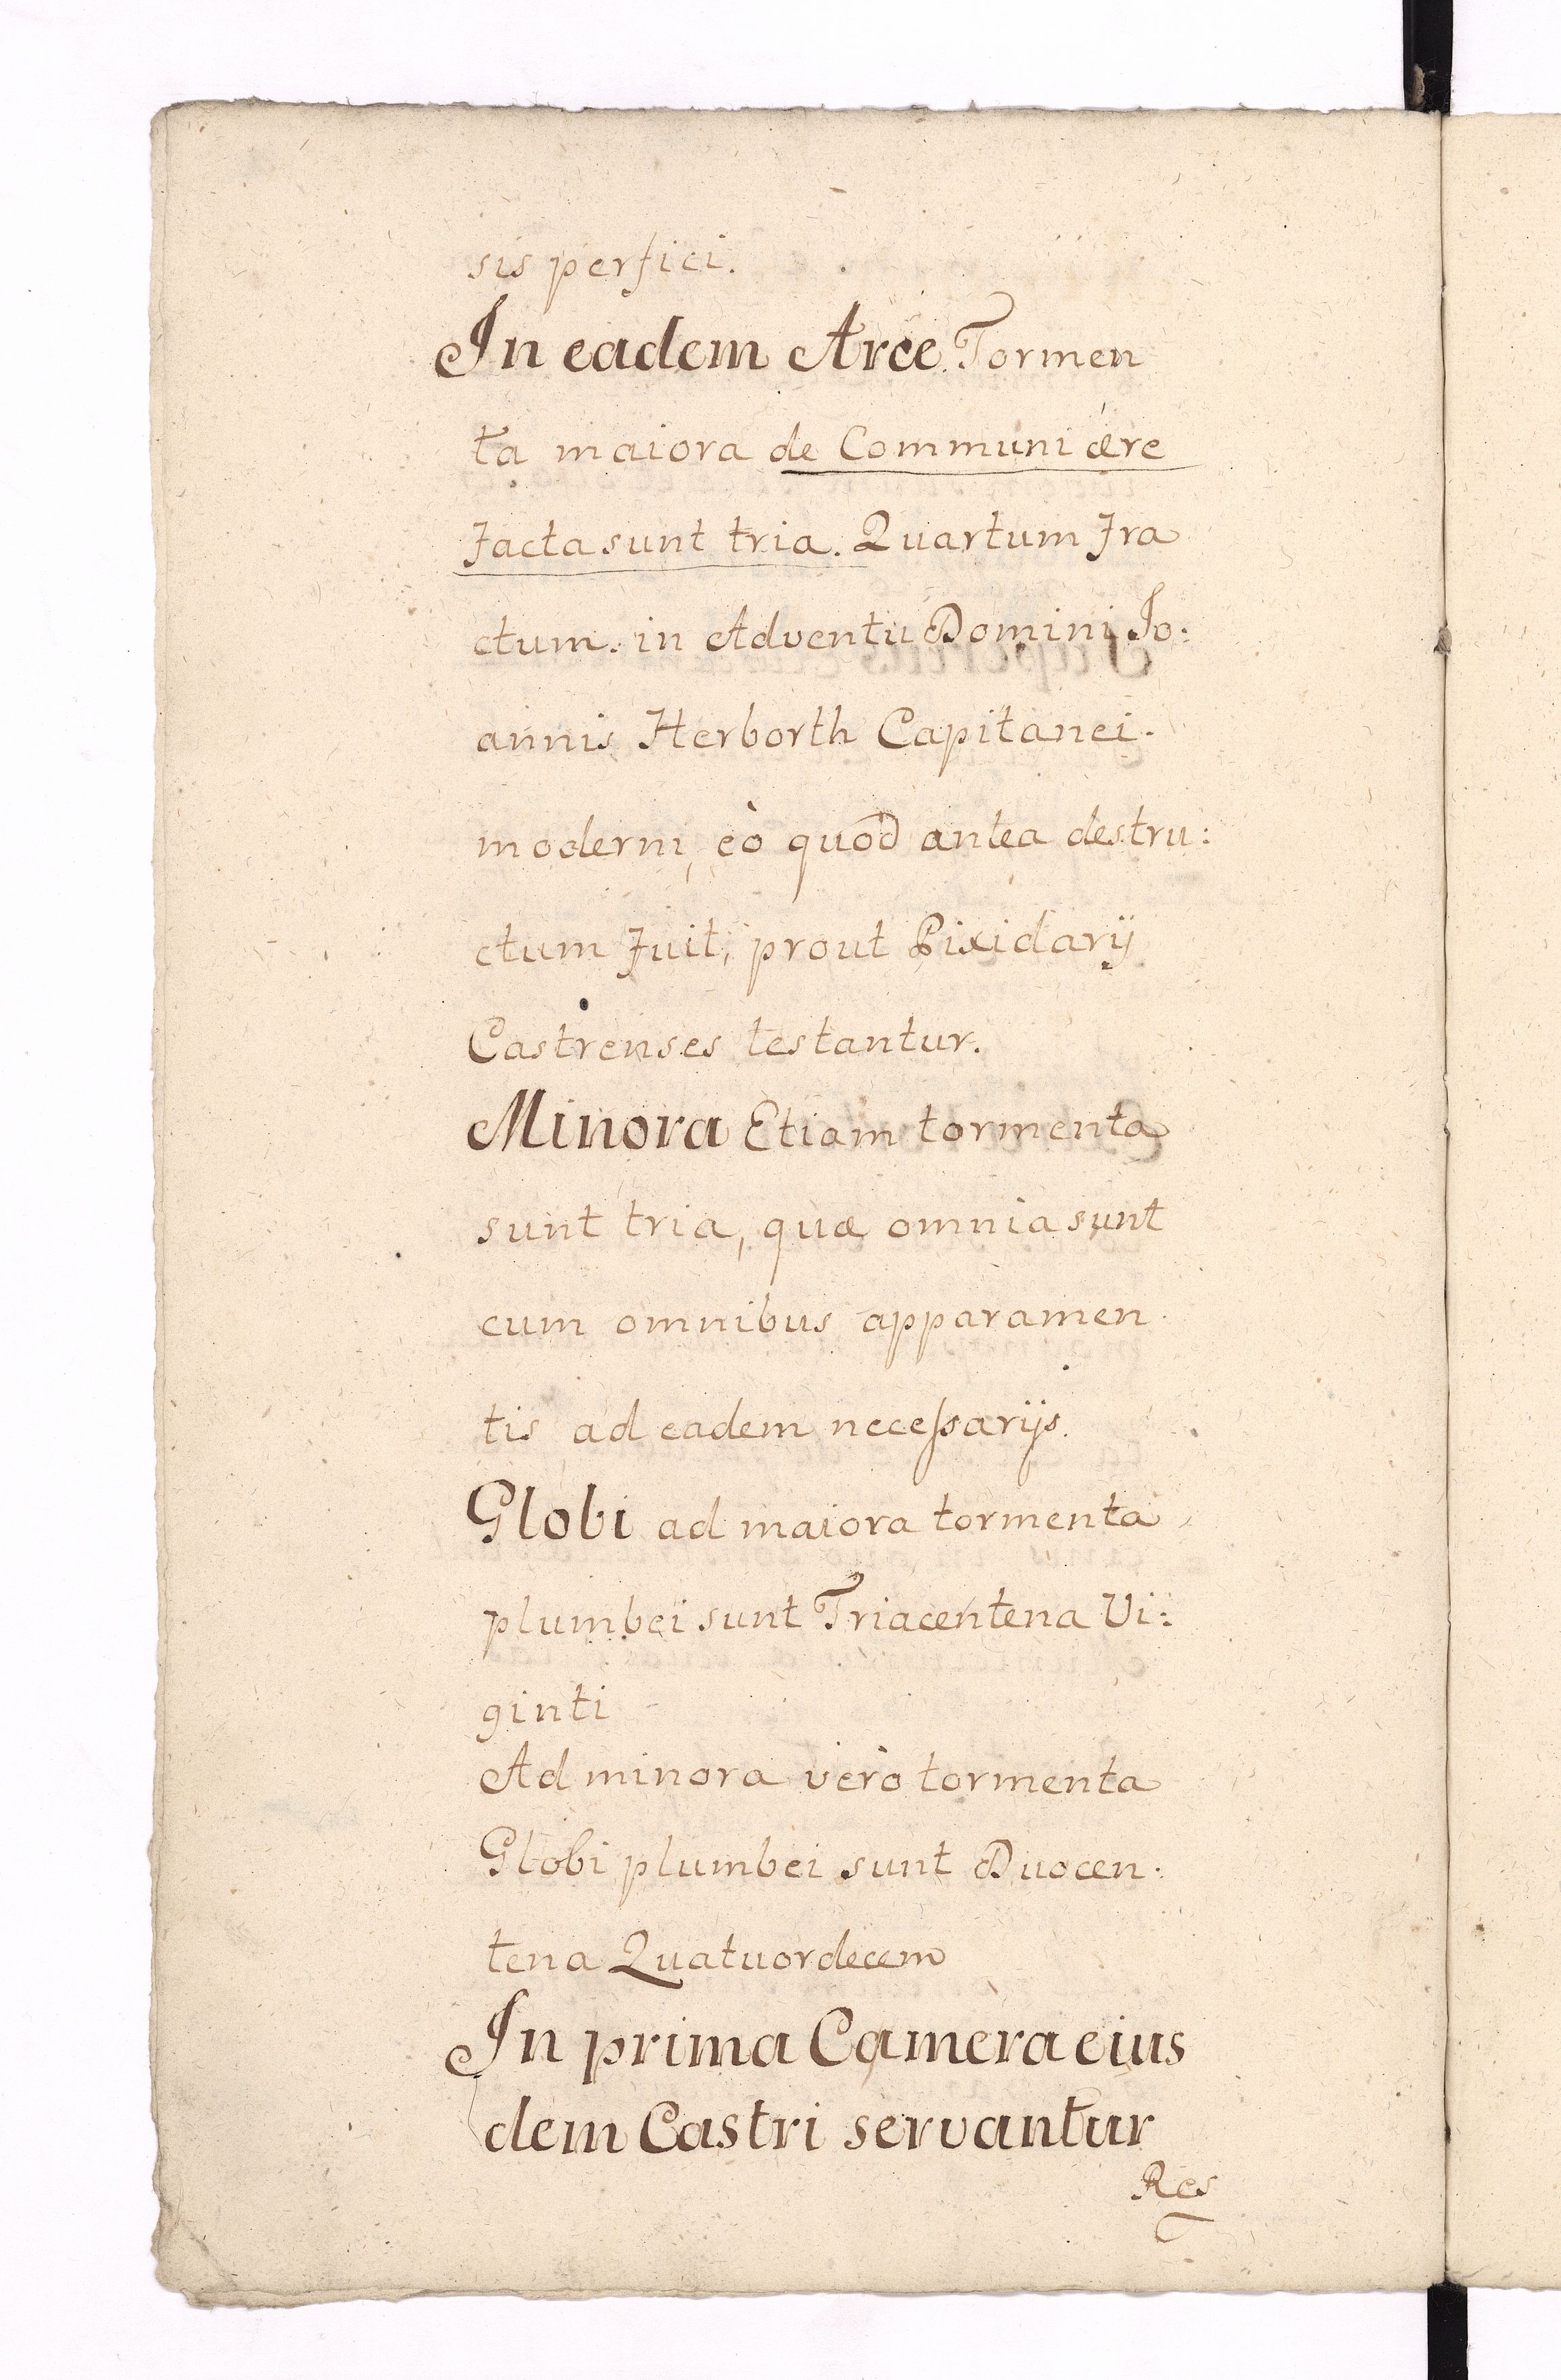 sis perfici.
In eadem Arce Tormen
ta maiora de Communi ære
facta sunt tria. Quartum fra
ctum in Adventu Domini Jo:
annis Herborth Capitanei
moderni, eò quod antea destru:
ctum fuit, prout Pixidarij
Castrenses testantur.
Minora Etiam tormenta
sunt tria, quæ omnia sunt
cum omnibus apparamen
tis ad eadem necessarijs.
Globi ad maiora tormenta
plumbei sunt Triacentena Vi:
ginti
Ad minora verò tormenta
Globi plumbei sunt Duocen:
tena Quatuordecem
In prima Camera eius
dem Castri servantur
Res